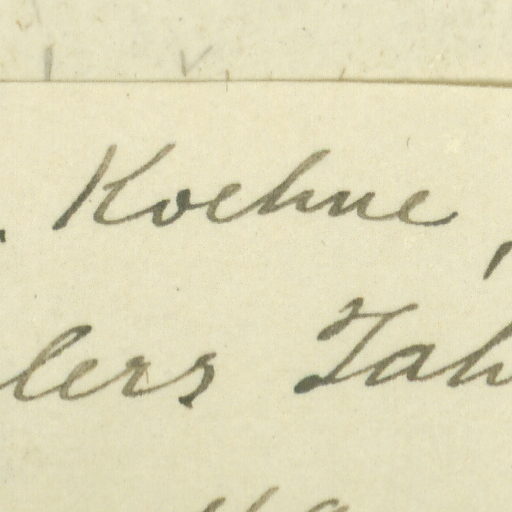 . Koehne,
lers Jah